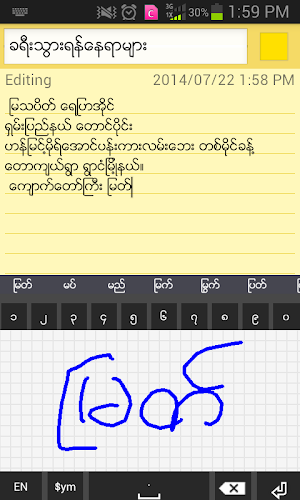 30% 1:59 PM
ခရီးသွားရန်နေရာများ
Editing 2014/07/22 1:58 PM
မြသပိတ် ရေပြာအိုင်
ရှမ်းပြည်နယ် တောင်ပိုင်း
ဟန်မြင့်မိုရ်အောင်ပန်းကားလမ်းဘေး တစ်မိုင်ခန့်
တောကျယ်ရွာ ရွာငံမြို့နယ်။
ကျောက်တော်ကြီး မြတ်
မြတ် မပ် မည် မြက် မြွက် ပြတ်
၁ ၂ ၃ ၄ ၅ ၆ ၇ ၈ ၉ ၀
မြတ်
EN $ym